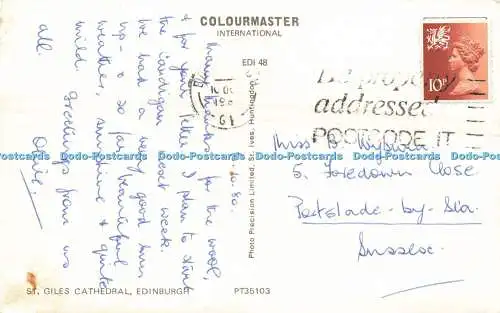 COLOURMASTER
INTERNATIONAL
EDI 48
Many thanks for the wool,
& for your letter. I plan to start
the cardigan next week.
We had a very good run
up - & so far beautiful
weather, sunshine & quite
mild. Greetings from us
all.
Photo Precision Limited, St. Ives, Huntingdon
10P
Be properly
addressed
POSTCODE IT
Miss B
5, Foredown Close
Portslade-by-Sea
Sussex.
Dodo-Postcards Dodo-Postcards Dodo-Postcards Dodo-Postcards Dodo-Postcards
ST. GILES CATHEDRAL, EDINBURGH
PT35103